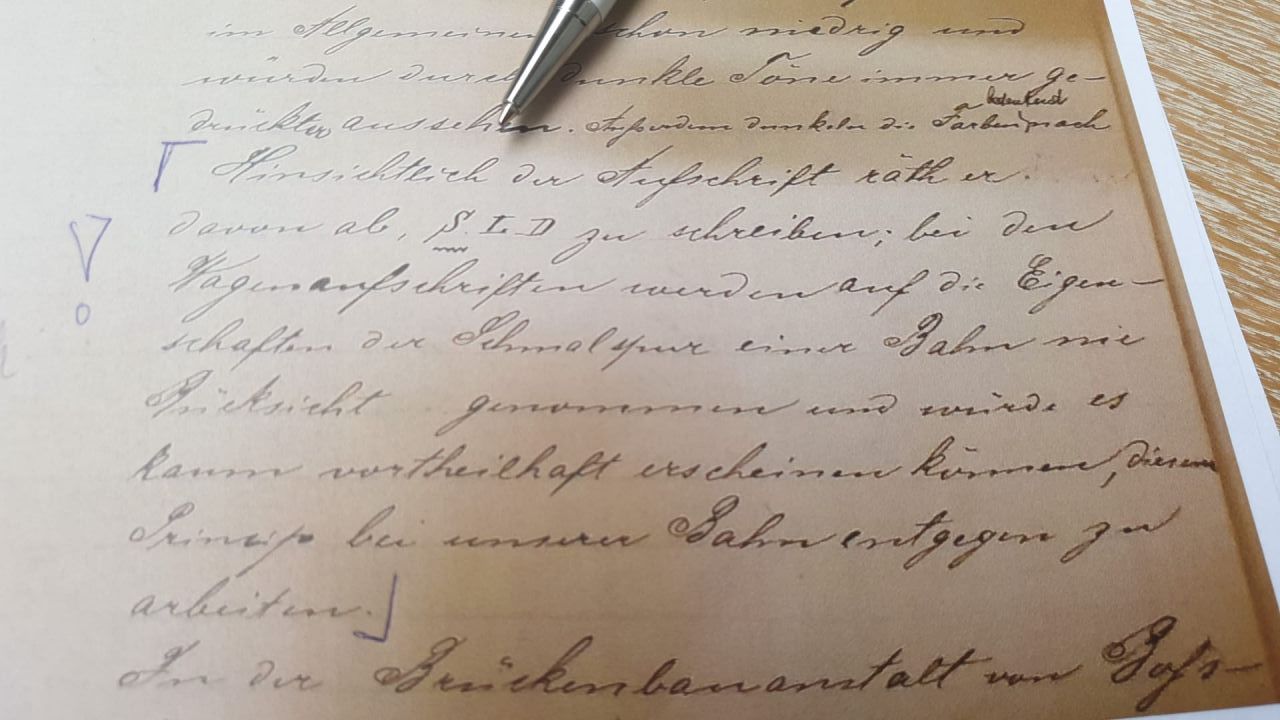 im Allgemeinen schon niedrig und
würden durch dunkle Töne immer ge-
drückter aussehen. Außerdem dunkeln die Farben bedeutend nach
Hinsichtlich der Aufschrift räth er
davon ab, S. L. D zu schreiben; bei den
Wagenaufschriften werden auf die Eigen-
schaften der Schmalspur einer Bahn nie
Rücksicht genommen und würde es
kaum vortheilhaft erscheinen können, diesem
Princip bei unserer Bahn entgegen zu
arbeiten.
In der Brückenbauanstalt von